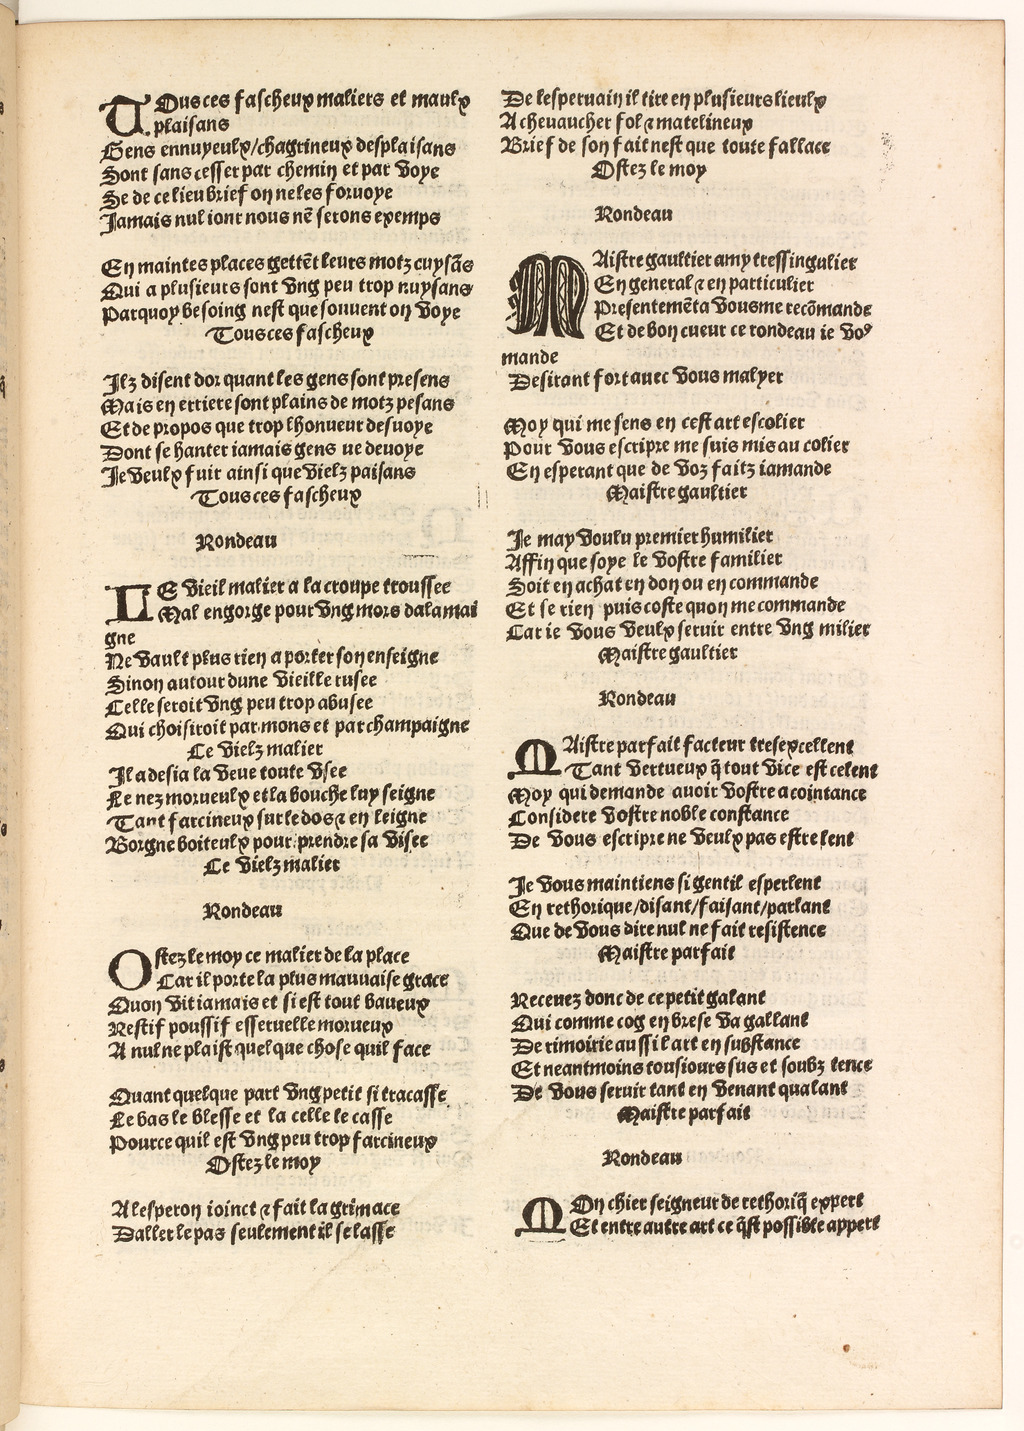 TOus ces fascheux maliers et maulx
plaisans
Gens ennuyeulx/chagrineux desplaisans
Sont sans cesser par chemin et par voye
Se de ce lieu brief on ne les forvoye
Jamais nul iour nous nē serons exemps
En maintes places gettēt leurs motz cuysās
Qui a plusieurs sont vng peu trop nuysans
Parquoy besoing nest que souuent on voye
Tous ces fascheux
Jlz disent dor quant les gens sont presens
Mais en erriere sont plains de motz pesans
Et de propos que trop lhonueur desuoye
Dont se hanter iamais gens ne deuoye
Je veulx fuir ainsi que vielz paisans
Tous ces fascheux
Rondeau
LE vieil malier a la croupe troussee
Mal engorge pour vng mors dalamai
gne
Ne vault plus rien a porter son enseigne
Sinon autour dune vieille rusee
Celle seroit vng peu trop abusee
Qui choisiroit par mons et par champaigne
Ce vielz malier
Jl a desia la veue toute vsee
Le nez morueulx et la bouche luy seigne
Tant farcineux sur le dos ⁊ en leigne
Borgne boiteulx pour prendre sa visee
Ce vielz malier
Rondeau
Ostez le moy ce malier de la place
Car il porte la plus mauuaise grace
Quon vit iamais et si est tout baueux
Restif poussif esseruelle morueux
A nul ne plaist quelque chose quil face
Quant quelque part vng petit si tracasse
Le bas le blesse et la celle le casse
Pource quil est vng peu trop farcineux
Ostez le moy
A lesperon ioinct ⁊ fait la grimace
Daller le pas seulement il se lasse
De lesperuain il tire en plusieurs lieulx
A cheuaucher fol ⁊ matelineux
Brief de son fait nest que toute fallace
Ostez le moy
Rondeau
MAistre gaultier amy tressingulier
En general ⁊ en particulier
Presentemēt a vous me recōmande
Et de bon cueur ce rondeau ie vo⁹
mande
Desirant fort auec vous malyer
Moy qui me sens en cest art escolier
Pour vous escripre me suis mis au colier
En esperant que de voz faitz iamande
Maistre gaultier
Je may voulu premier humilier
Affin que soye le vostre familier
Soit en achat en don ou en commande
Et se rien puis coste quon me commande
Car ie vous veulx seruir entre vng milier
Maistre gaultier
Rondeau
MAistre parfait facteur tresexcellent
Tant vertueux q̄ tout vice est celent
Moy qui demande auoir vostre acointance
Considere vostre noble constance
De vous escripre ne veulx pas estre lent
Je vous maintiens si gentil esperlent
En rethorique/disant/faisant/parlant
Que de vous dire nul ne fait resistence
Maistre parfait
Receuez donc de ce petit galant
Qui comme cog en brese va gallant
De rimoirie aussi lart en substance
Et neantmoins tousiours sus et soubz tence
De vous seruir tant en venant qualant
Maistre parfait
Rondeau
MOn chier seigneur de rethoriq̄ expert
Et entre autre art ce q̄st possible appert